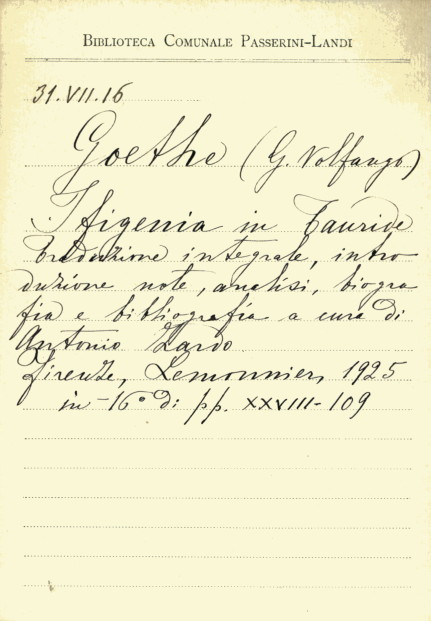 BIBLIOTECA COMUNALE PASSERINI-LANDI
31.VII.16
Goethe (G. Volfango)
Ifigenia in Tauride
traduzione integrale, intro
duzione note, analisi, biogra
fia e bibliografia a cura di
Antonio Zardo.
Firenze, Lemonnier, 1925
in-16° di pp. XXVIII-109